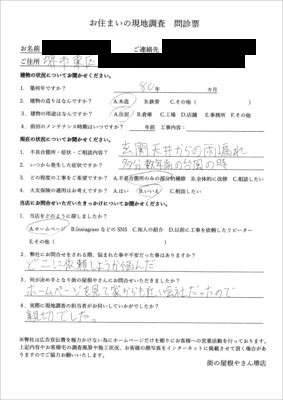 お住まいの現地調査　問診票
お名前　ご連絡先
ご住所　堺市東区
建物の状況についてお聞かせください。
1. 築何年ですか？　80年　カ月
2. 建物の造りはなんですか？　A.木造　B.鉄骨　C.その他（　）
3. 建物の用途はなんですか？　A.住居　B.倉庫　C.工場　D.店舗　E.事務所　F.その他
4. 前回のメンテナンス時期はいつですか？　年前　工事内容：
現在の状況についてお聞かせください。
1. 不具合箇所・症状・ご相談内容？　玄関天井からの雨漏れ
2. いつから発生した症状ですか？　多分数年前の台風の時
3. どの程度の工事をご希望ですか？　A.不具合箇所のみの部分的補修　B.全体的に改修　C.相談したい
4. 火災保険の適用はお考えですか？　A.はい　B.いいえ　C.相談したい
当店にお問合せいただいたきっかけについてお聞かせください。
1. 当店をどのように探しましたか？
A.ホームページ　B.InstagramなどのSNS　C.知人の紹介　D.以前に工事を依頼したリピーター
E.その他（　）
2. 弊社にお問合せをされる際、悩まれた事や不安だった事はありますか？
どこに依頼しようか悩んだ
3. 何が決め手となり街の屋根やさんにお問合せいただきましたか？
ホームページを見て家からも近い会社だったので
4. 実際に現地調査の担当者がお伺いしていかがでしたか？
親切でした。
※弊社は広告宣伝費を極力かけない為にホームページだけを頼りにお客様への営業活動を行っております。
上記内容やお客様宅の調査風景や施工状況、お客様の顔写真をインターネットに掲載させて頂く場合が
ありますのでご協力お願いいたします。
街の屋根やさん堺店